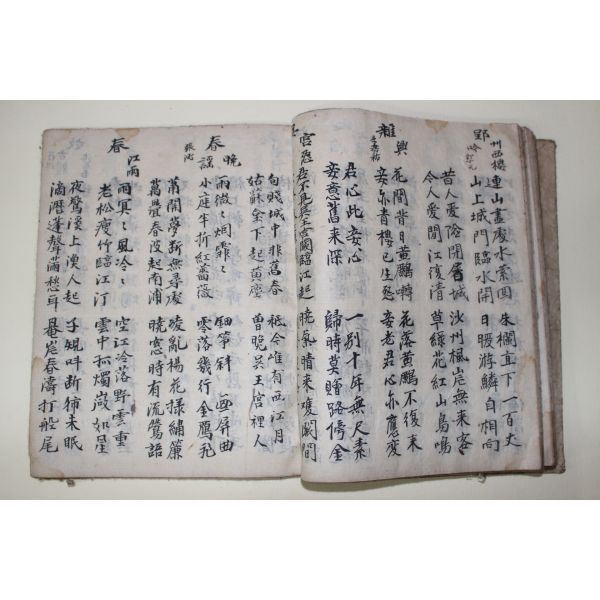 郢州西樓
吟
連山盡處水縈回　朱欄直下一百丈
山上城門臨水開　日暖游鱗自相向
昔人愛險閉層城　沙州楓岸無來客
今人愛閒江復清　草綠花紅山鳥鳴
雜興
花間昔日黃鸝囀　花落黃鸝不復來
妾亦青樓已生愁　妾老君心亦應變
君心比妾心　一別十年無尺素
妾意舊來深　歸時莫贈路傍金
宮怨　君不見吳王宮閣臨江起　曉氣晴來雙闕間
句賤城中非舊春　秪今唯有西江月
姑蘇臺下起黃塵　曾照吳王宮裡人
春晚謠
張泌
雨微〻烟霏〻　鈿箏斜　畫屏曲
小庭半折紅薔薇　零落幾行金鴈飛
蕭關夢斷無尋處　凌亂楊花撲繡簾
萬疊春波起南浦　曉窓時有流鶯語
春江雨
雨冥〻風冷〻　空江冷落野雲重
老松瘦竹臨江汀　雲中孤燭微如星
夜驚溪上漁人起　子規叫斷獨未眠
滴瀝篷聲滿愁耳　罨岸春濤打船尾